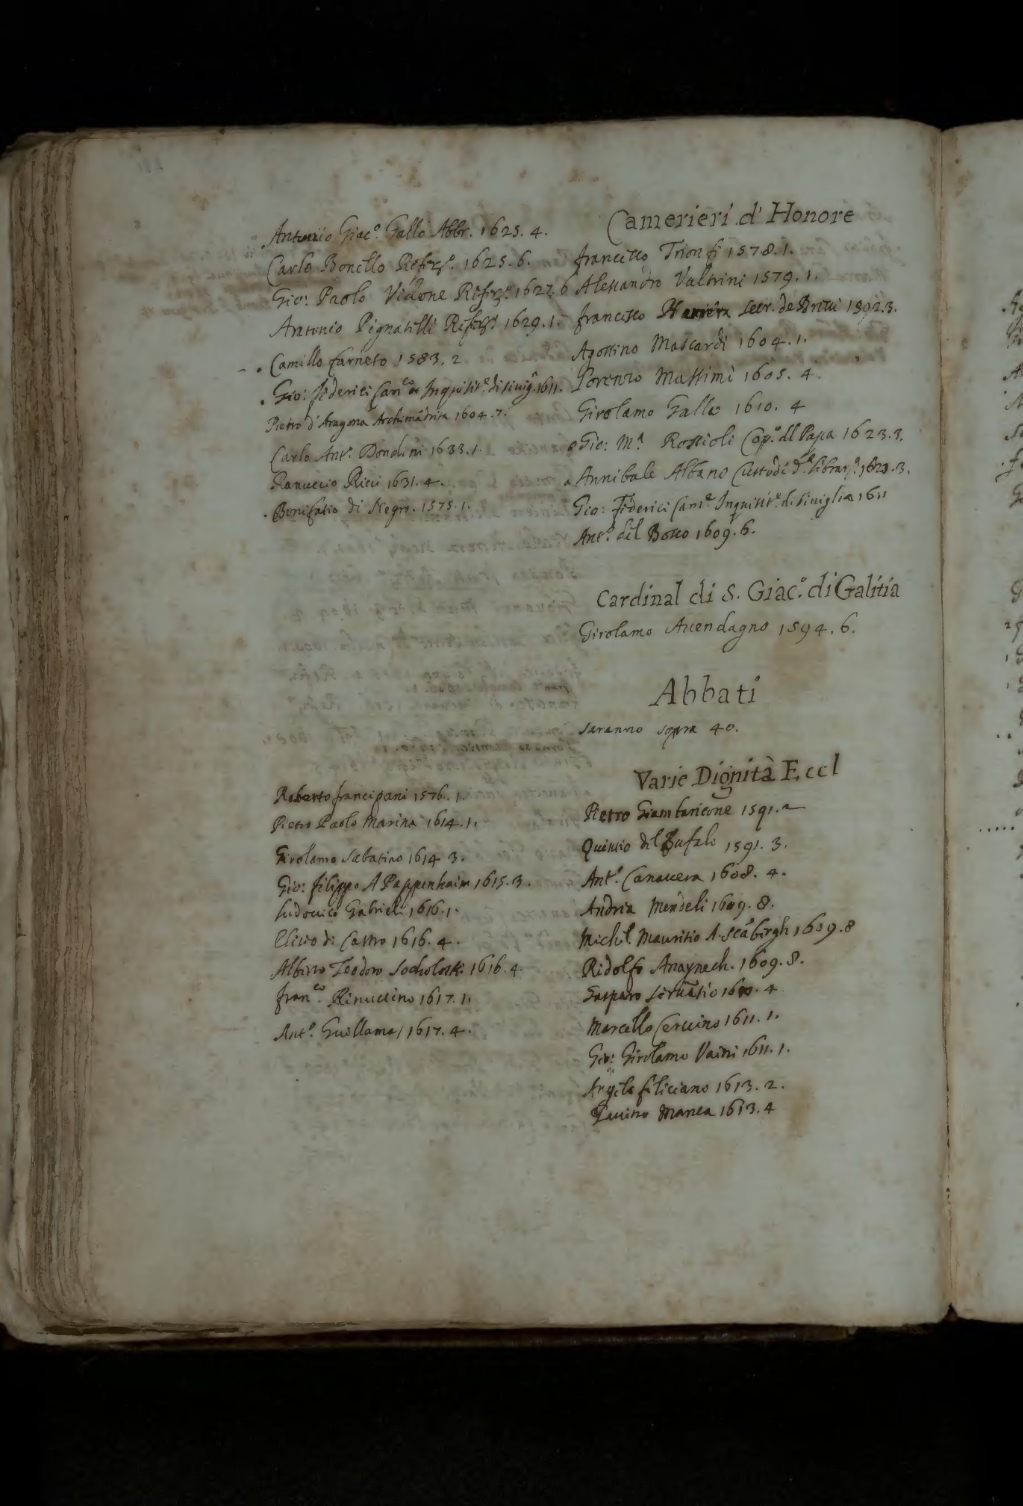 Antonio Giac.º Gallo Abbr. 1625. 4.
Carlo Bonello Refr.º 1625. 6.
Gio: Paolo Vidone Refr.º 1627. 6
Antonio Pignatelli Refr.º 1629. 1.
Camillo farneto 1583. 2
Gio: federici Can.co Inquisit.e di sinig. 1611.
Pietro d'Aragona Archimadria 1604. 7.
Carlo Ant.º Dondini 1633. 1.
Ranuccio Ricci 1631. 4.
Bonifatio di Negro. 1575. 1.
Roberto francipani 1576. 1.
Pietro Paolo Marina 1614. 1.
Girolamo Sabatino 1614 3.
Gio: filippo A Pappenhaim 1615. 3.
Ludovico Gabrieli 1616. 1.
di Castro 1616. 4.
Albino Teodoro 1616. 4
fran.co Rinuccino 1617. 1.
Ant.º 1617. 4.
Camerieri d'Honore
francesco Trionfi 1578. 1.
Alessandro Valtrini 1579. 1.
francesco Herrera Secr. de Brevi 1592. 3.
Agostino Mascardi 1604. 1.
Lorenzo Massimi 1605. 4.
Girolamo Gallo 1610. 4
Gio: M.a Roscioli Cop.º dl Papa 1623. 3.
Annibale Albano Custode d. librar.a 1623. 3.
Gio: Federici Can.e Inquisit.e di Siniglia 1611
Ant.º del Bosco 1609. 6.
Cardinal di S. Giac.º di Galitia
Girolamo Avendagno 1594. 6.
Abbati
saranno sopra 40.
Varie Dignità Eccl
Pietro 1591. 2
Quintio del Bufalo 1591. 3.
Ant.º Canavera 1608. 4.
Andria Mendeli 1609. 8.
Michel Mauritio A 1609. 8
Ridolfo 1609. 8.
Gasparo 1610. 4
Marcello Cervino 1611. 1.
Gio: Girolamo Vaini 1611. 1.
feliciano 1613. 2.
Gavino Manca 1613. 4